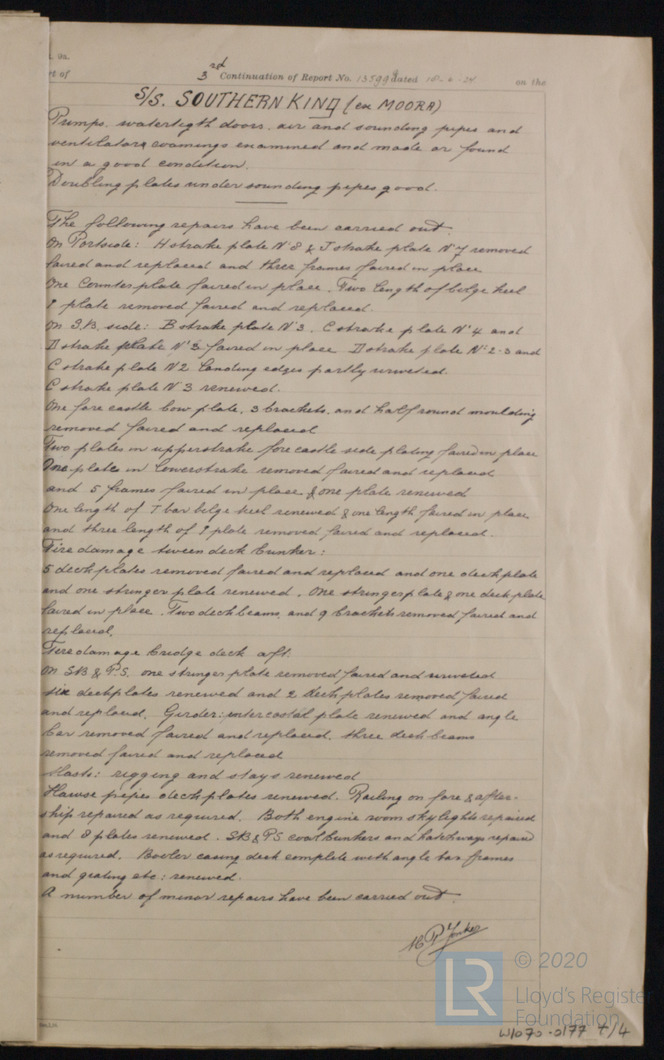 3rd Continuation of Report No. 13599 dated 18-6-24 on the
S/S. SOUTHERN KING (ex MOORA)
Pumps, watertigth doors, air and sounding pipes and
ventilators coamings examined and made or found
in a good condition.
Doubling plates under sounding pipes good.
The following repairs have been carried out.
On Portside: H strake plate No 8 & J strake plate No 7 removed
faired and replaced and three frames faired in place
One Counter plate faired in place. Two length of bilge keel
plate removed faired and replaced.
On S.B. side: B strake plate No 3, C strake plate No 4 and
D strake plate No 3 faired in place D strake plate No 2-3 and
C strake plate No 2 landing edges partly unriveted.
C strake plate No 3 renewed.
One fore castle bow plate, 3 brackets, and half round moulding
removed faired and replaced
Two plates in upperstrake fore castle side plating faired in place
One plate in lowerstrake removed faired and replaced
and 5 frames faired in place & one plate renewed
One length of T bar bilge keel renewed & one length faired in place
and three length of plate removed faired and replaced.
Fire damage tween deck bunker:
5 deck plates removed faired and replaced and one deck plate
and one stringer plate renewed. One stringerplate & one deck plate
faired in place. Two deck beams and 9 brackets removed faired and
replaced.
Fire damage bridge deck aft:
On SB & P.S. one stringer plate removed faired and unriveted
six deckplates renewed and 2 deck plates removed faired
and replaced. Girder: intercostal plate renewed and angle
bar removed faired and replaced, three deck beams
removed faired and replaced
Masts: rigging and stays renewed
Hawse pipes deck plates renewed. Railing on fore & after-
ship repaired as required. Both engine room skylights repaired
and 8 plates renewed. SB & PS coal bunkers and hatchways repaired
as required. Boiler casing deck complete with angle bar frames
and grating etc: renewed.
A number of minor repairs have been carried out.
LR
© 2020
Lloyd's Register
Foundation
W1070-0177 4/4